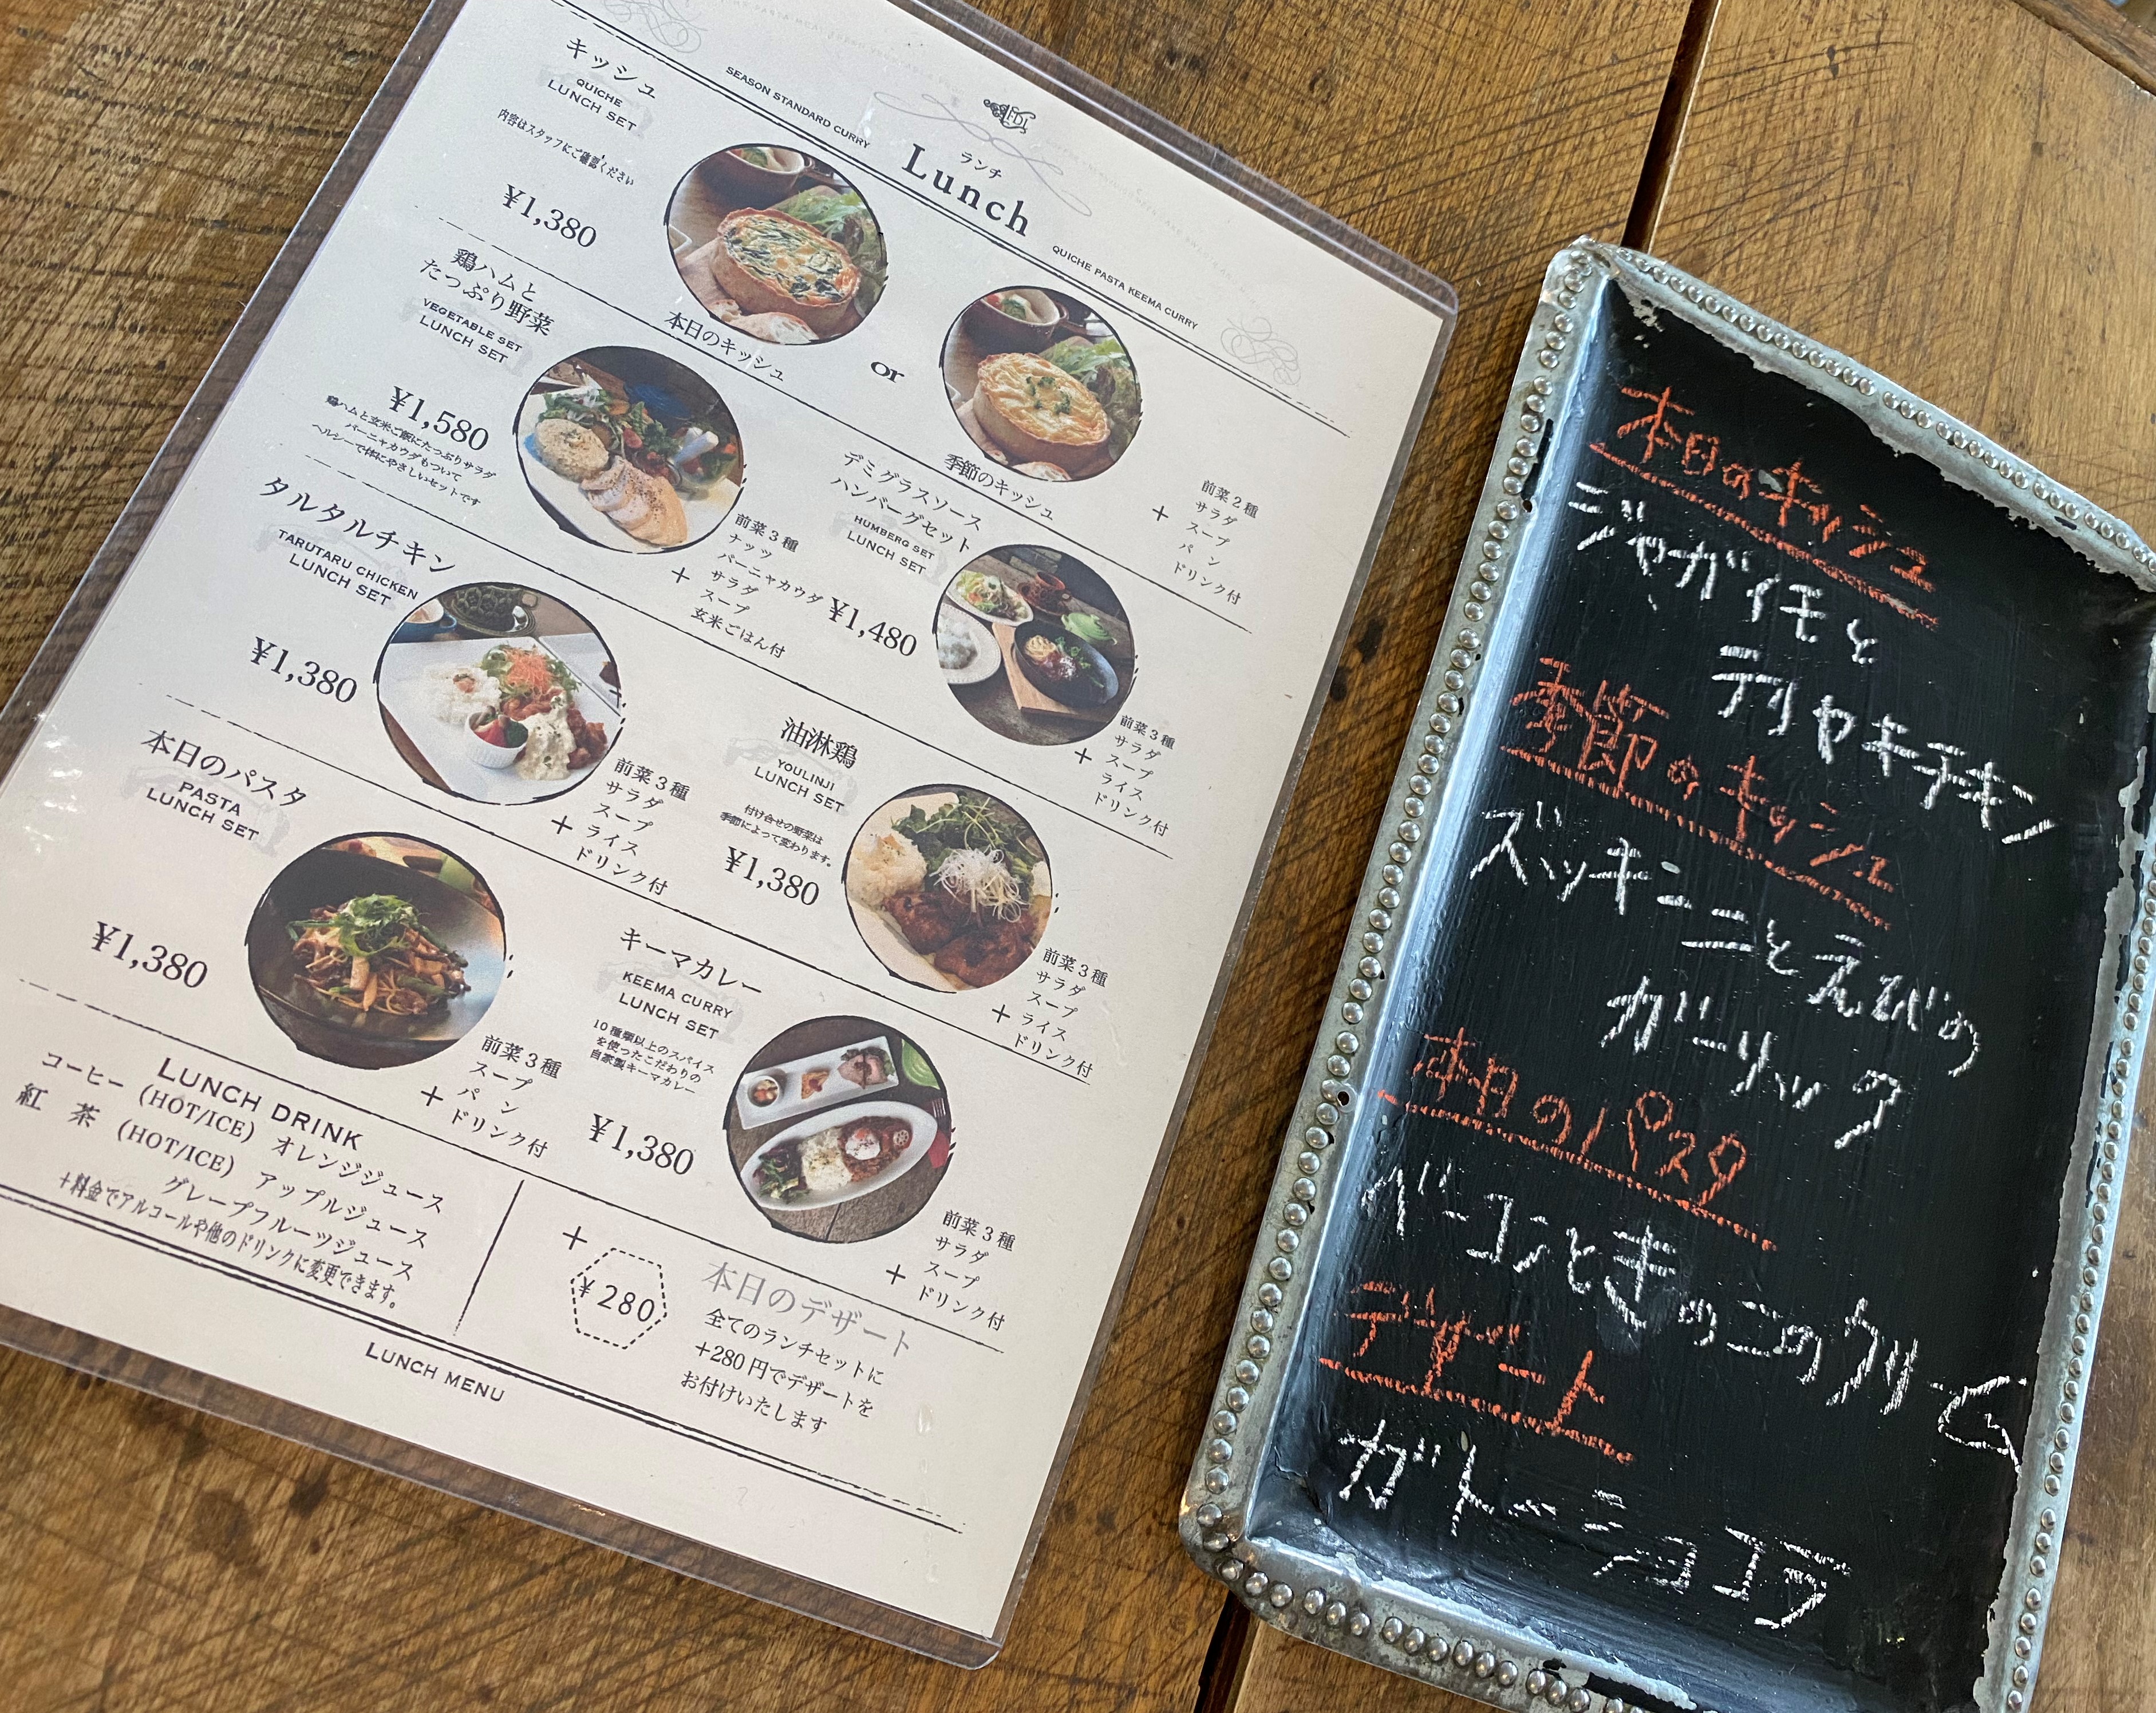 SEASON STANDARD CURRY
ランチ
Lunch
QUICHE PASTA KEEMA CURRY
キッシュ
QUICHE
LUNCH SET
内容はスタッフにご確認ください
¥1,380
本日のキッシュ
or
季節のキッシュ
+
前菜2種
サラダ
スープ
パン
ドリンク付
鶏ハムと
たっぷり野菜
VEGETABLE SET
LUNCH SET
¥1,580
鶏ハムと玄米ご飯にたっぷりサラダ
バーニャカウダもついて
ヘルシーで体にやさしいセットです
+
前菜3種
ナッツ
バーニャカウダ
サラダ
スープ
玄米ごはん付
デミグラスソース
ハンバーグセット
HUMBERG SET
LUNCH SET
¥1,480
+
前菜3種
サラダ
スープ
ライス
ドリンク付
タルタルチキン
TARUTARU CHICKEN
LUNCH SET
¥1,380
+
前菜3種
サラダ
スープ
ライス
ドリンク付
油淋鶏
YOULINJI
LUNCH SET
付け合せの野菜は
季節によって変わります。
¥1,380
+
前菜3種
サラダ
スープ
ライス
ドリンク付
本日のパスタ
PASTA
LUNCH SET
¥1,380
+
前菜3種
スープ
パン
ドリンク付
キーマカレー
KEEMA CURRY
LUNCH SET
10種類以上のスパイス
を使ったこだわりの
自家製キーマカレー
¥1,380
+
前菜3種
サラダ
スープ
ドリンク付
LUNCH DRINK
コーヒー (HOT/ICE) オレンジジュース
紅 茶 (HOT/ICE) アップルジュース
グレープフルーツジュース
+料金でアルコールや他のドリンクに変更できます。
+
¥280
本日のデザート
全てのランチセットに
+280円でデザートを
お付けいたします
LUNCH MENU
本日のキッシュ
ジャガイモと
テリヤキチキン
季節のキッシュ
ズッキーニとえびの
ガーリック
本日のパスタ
ベーコンときのこのクリーム
デザート
ガトーショコラ